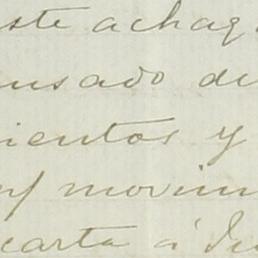 este achaq
nsado de
ientos y
movim
carta á